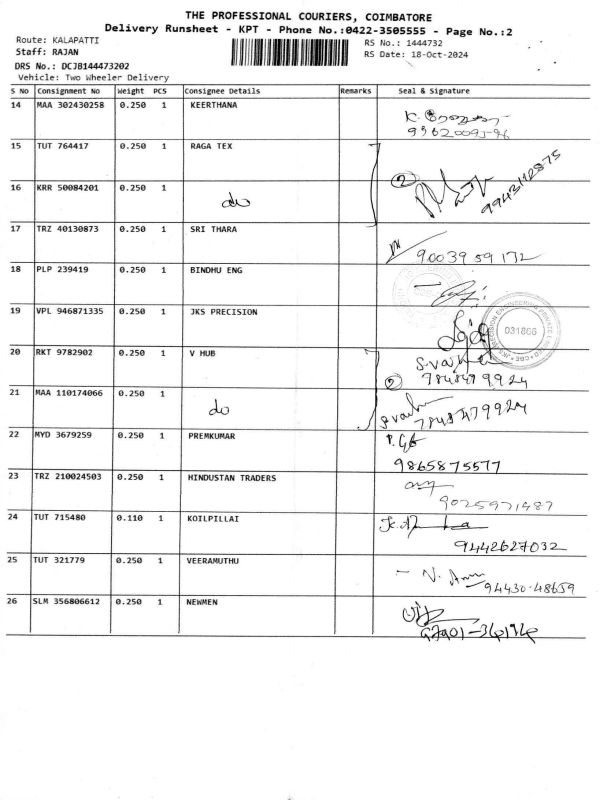 THE PROFESSIONAL COURIERS, COIMBATORE
Delivery Runsheet - KPT - Phone No.:0422-3505555 - Page No.:2
Route: KALAPATTI
RS No.: 1444732
Staff: RAJAN
RS Date: 18-Oct-2024
DRS No.: DCJB144473202
Vehicle: Two Wheeler Delivery
S No Consignment No Weight PCS Consignee Details Remarks Seal & Signature
14 MAA 302430258 0.250 1 KEERTHANA
15 TUT 764417 0.250 1 RAGA TEX
16 KRR 50084201 0.250 1 do
2
9943112875
17 TRZ 40130873 0.250 1 SRI THARA
90039 59 172
18 PLP 239419 0.250 1 BINDHU ENG
19 VPL 946871335 0.250 1 JKS PRECISION
031866
20 RKT 9782902 0.250 1 V HUB
2
7848479924
21 MAA 110174066 0.250 1 do
7848479924
22 MYD 3679259 0.250 1 PREMKUMAR
9865875577
23 TRZ 210024503 0.250 1 HINDUSTAN TRADERS
9025971487
24 TUT 715480 0.110 1 KOILPILLAI
9442627032
25 TUT 321779 0.250 1 VEERAMUTHU
94430-48659
26 SLM 356806612 0.250 1 NEWMEN